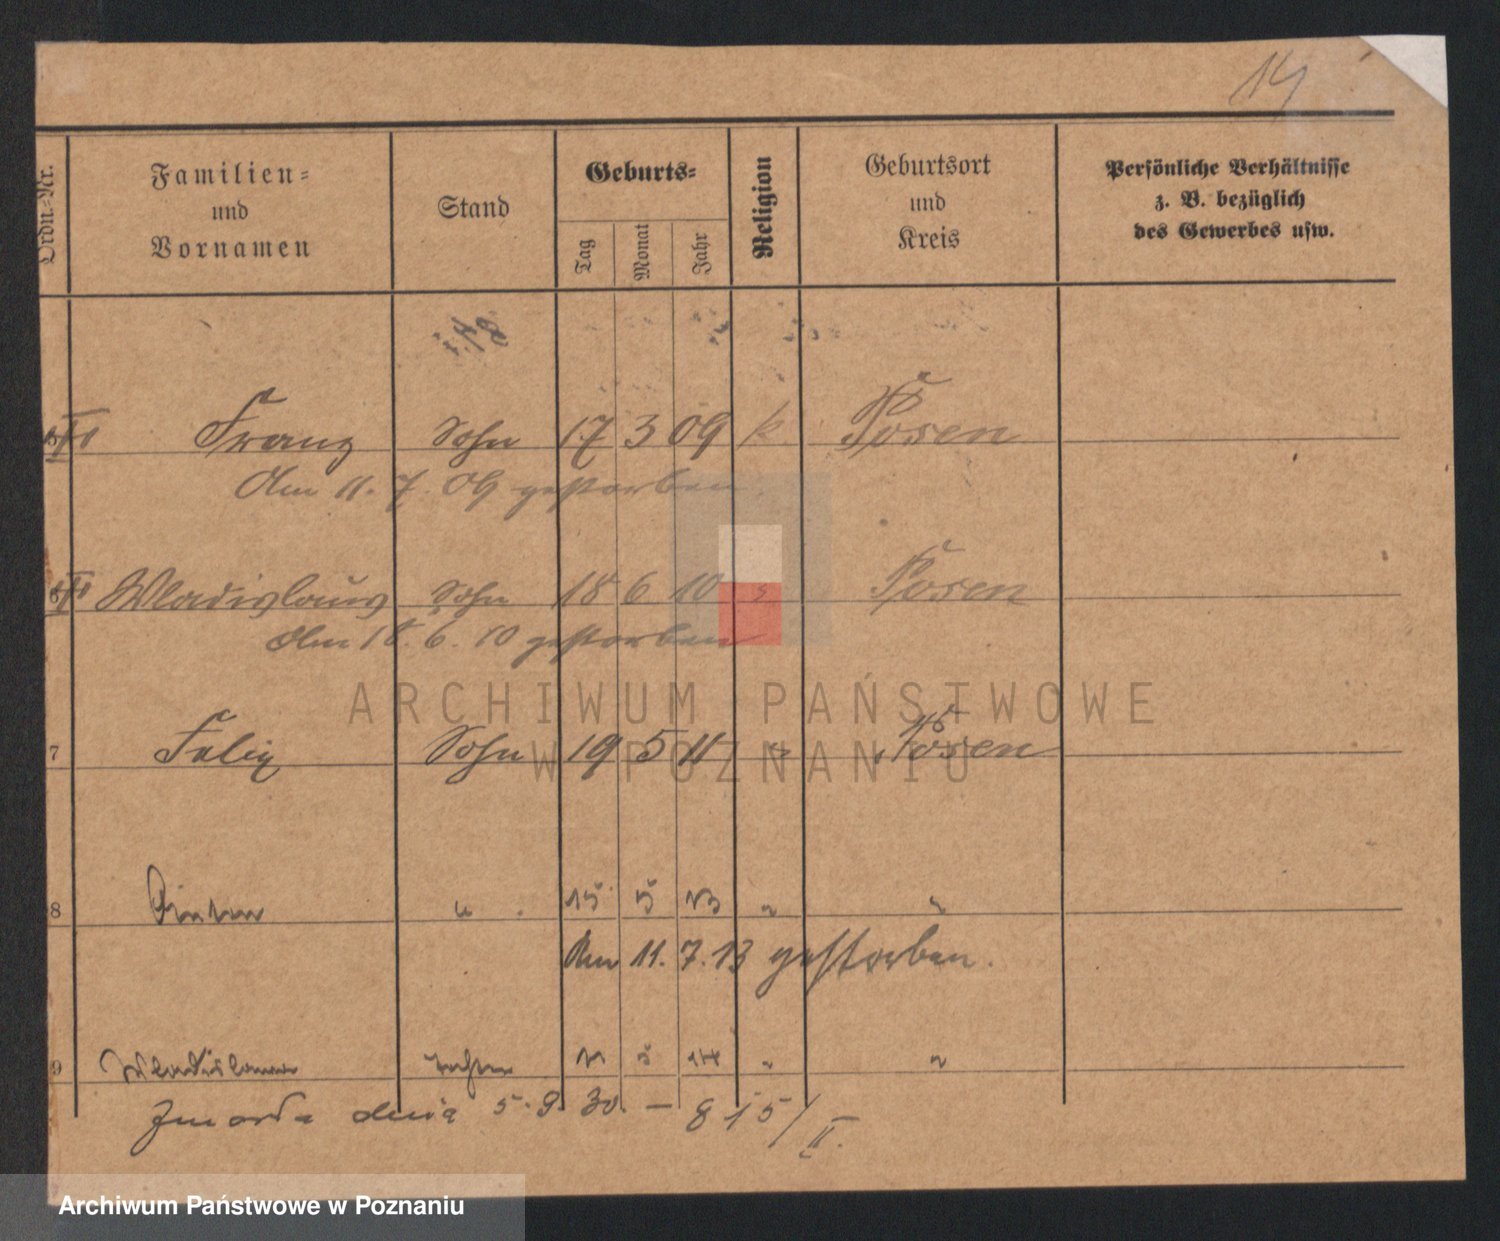 14
Ordn.-Nr.
Familien-
und
Vornamen
Stand
Geburts-
Tag
Monat
Jahr
Religion
Geburtsort
und
Kreis
Persönliche Verhältnisse
z. B. bezüglich
des Gewerbes usw.
Franz Sohn 17 3 09 k. Posen
Am 11. 7. 09 gestorben.
Wladislaus Sohn 18 6 10 " Posen
Am 18. 6. 10 gestorben
ARCHIWUM PAŃSTWOWE
7 Felix Sohn 19 5 11 " Posen
W POZNANIU
8 " 15 5 13 " "
Am 11. 7. 13 gestorben.
9 Wladislawa Tochter 5 14 " "
Zmarła dnia 5. 9. 30. – 815/II.
Archiwum Państwowe w Poznaniu